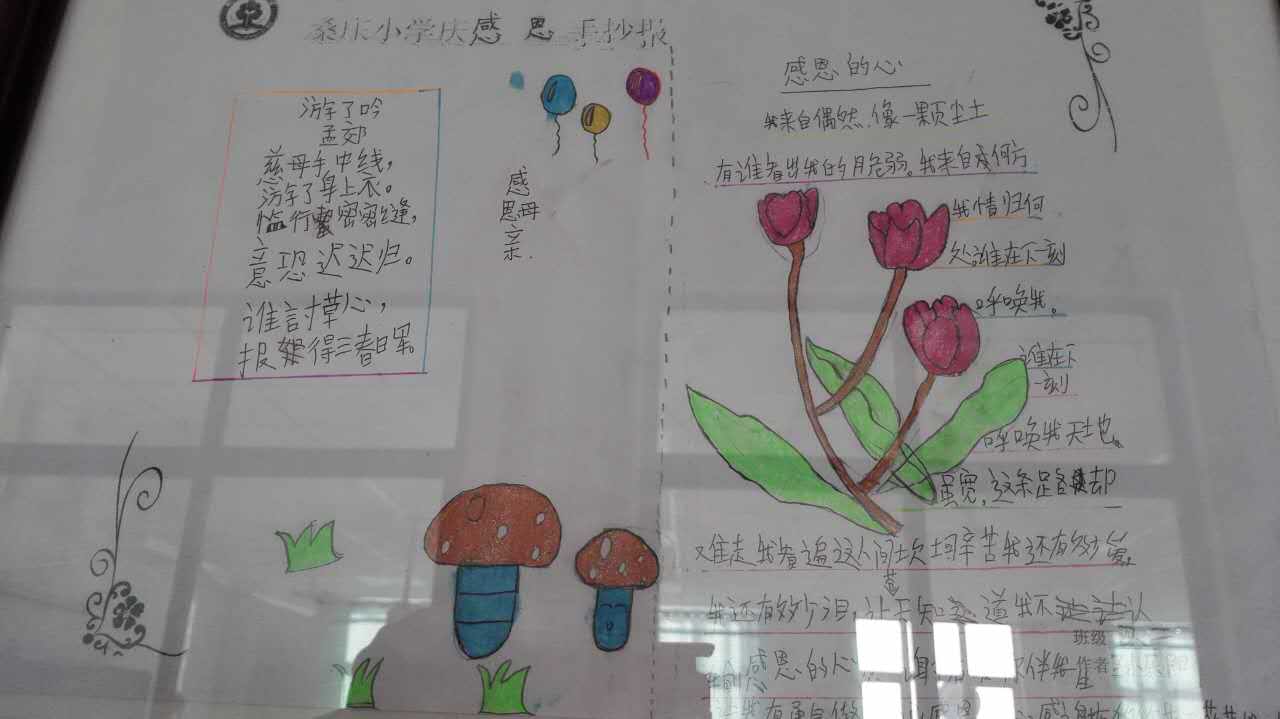 桑庄小学庆感 恩 手抄报
游子吟
孟郊
慈母手中线,
游子身上衣。
临行密密缝,
意恐迟迟归。
谁言寸草心,
报得三春晖。
感
恩母
亲.
感恩的心
我来自偶然.像一颗尘土
有谁看出我的脆弱。我来自何方
我情归何
处谁在下一刻
呼唤我。
谁在下
一刻
呼唤我天地
虽宽,这条路却
难走我看遍这人间坎坷辛苦我还有多少爱
我还有多少泪,让苍天知道我不认
班级
感恩的心
伴
作者
我有勇气做
感恩